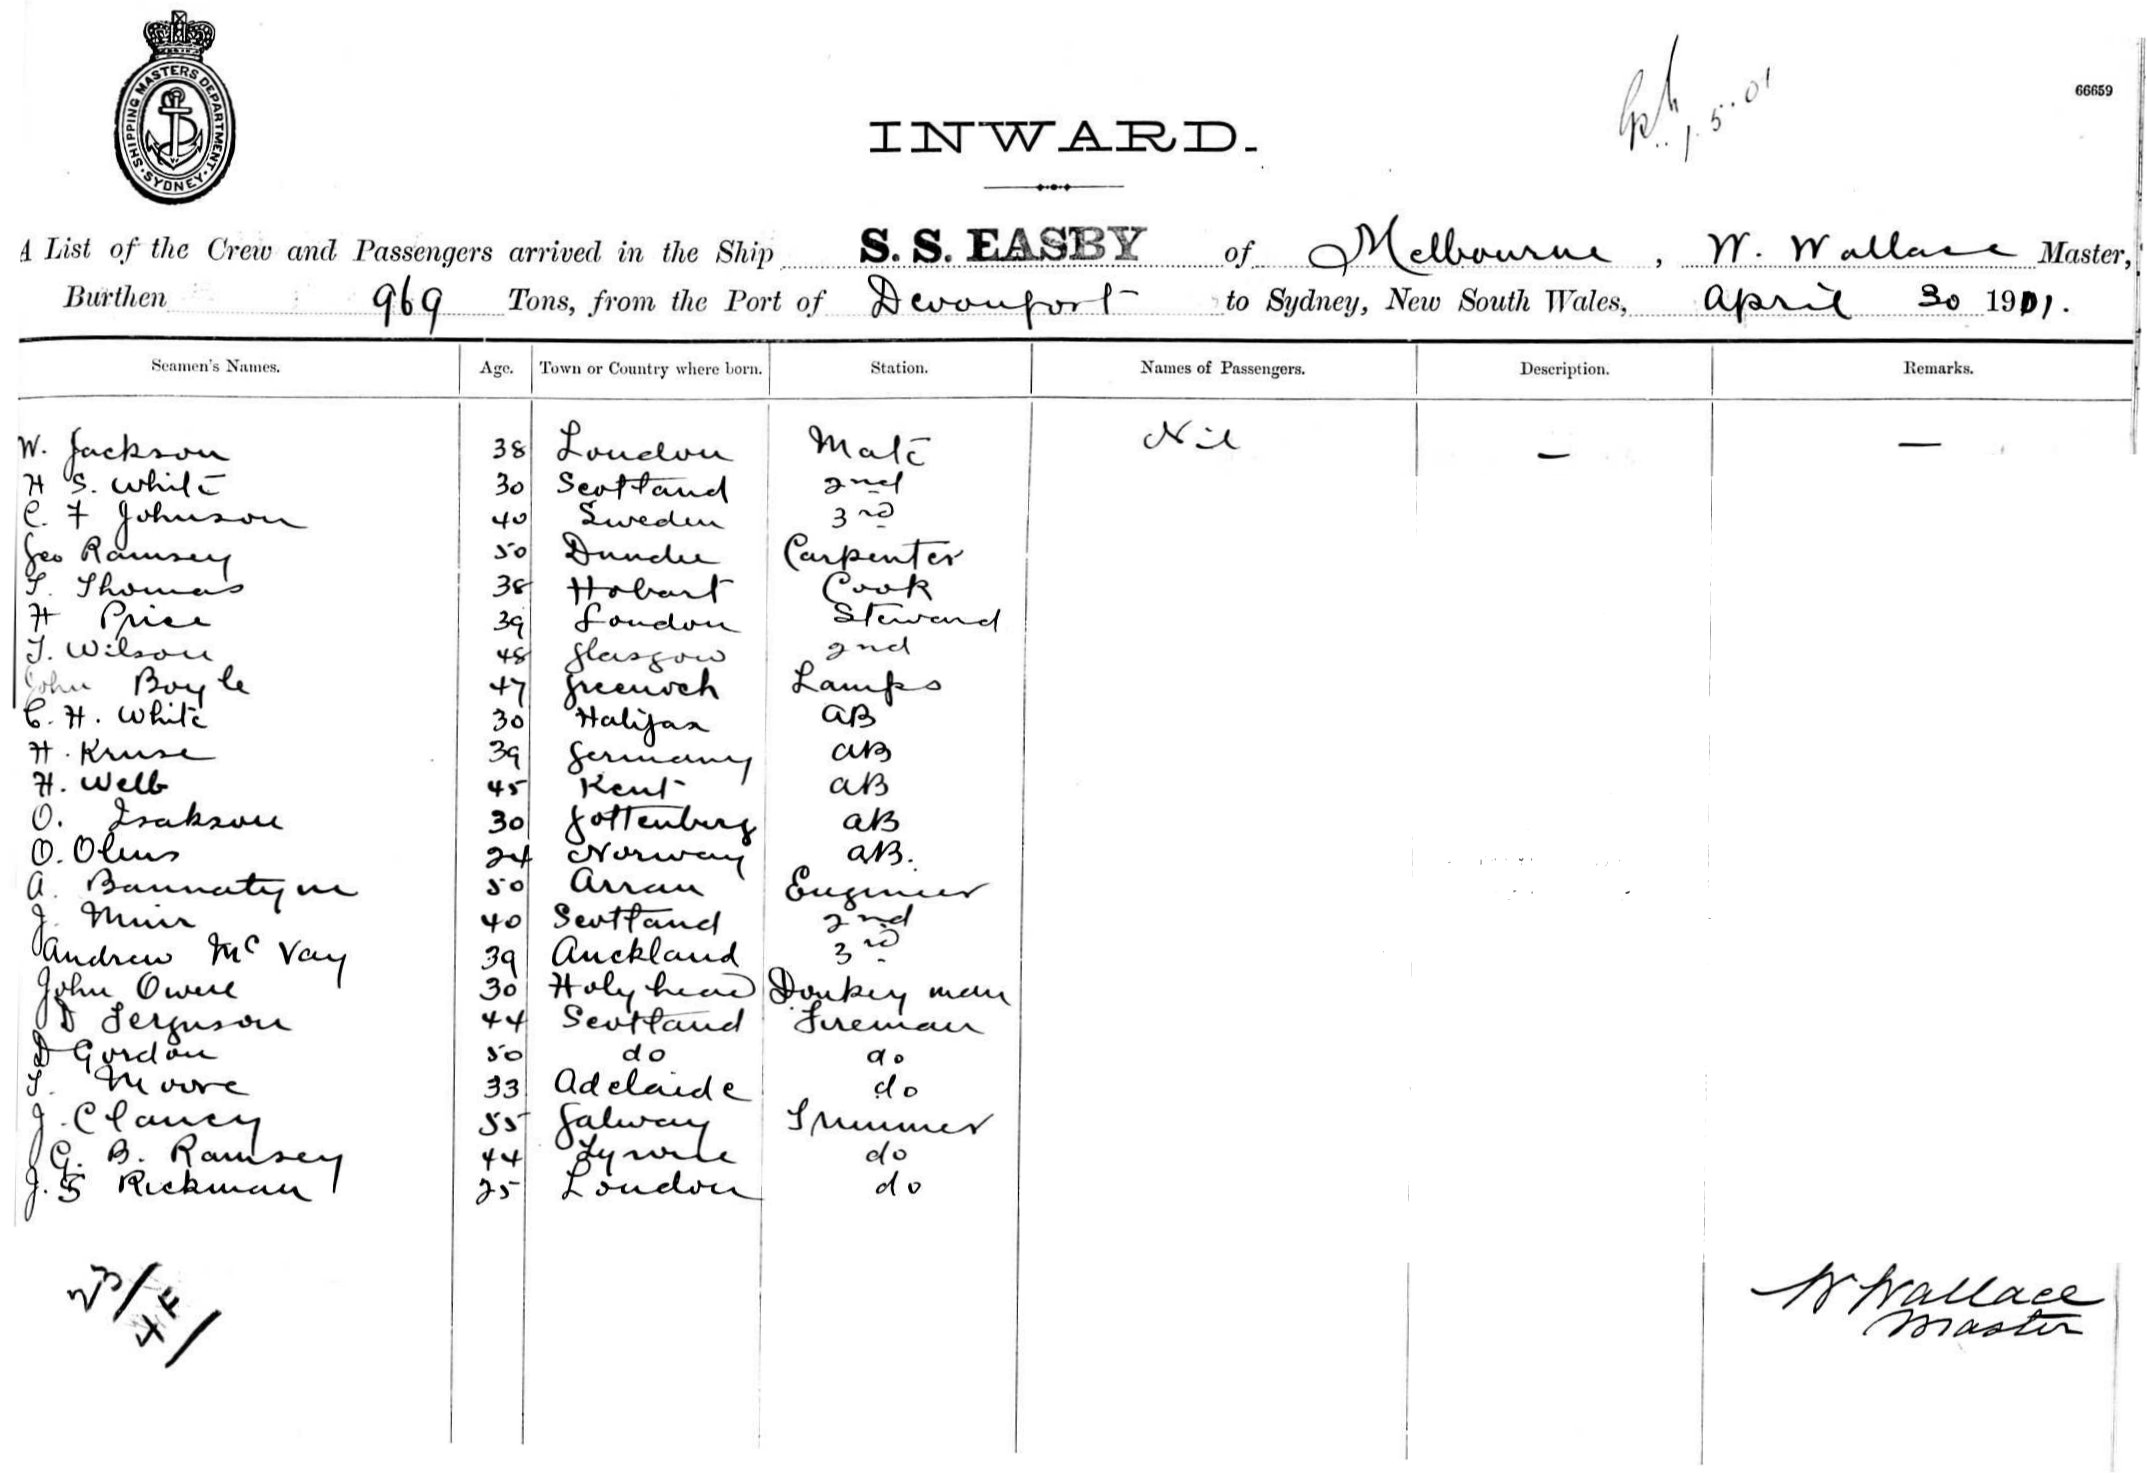 SHIPPING MASTERS DEPARTMENT
SYDNEY
1.5.01
66659
INWARD.
A List of the Crew and Passengers arrived in the Ship S. S. EASBY of Melbourne, W. Wallace Master,
Burthen 969 Tons, from the Port of Devonport to Sydney, New South Wales, April 30 1901.
Seamen's Names. Age. Town or Country where born. Station. Names of Passengers. Description. Remarks.
W. Jackson 38 London Mate Nil — —
H S. White 30 Scotland 2nd
C. F Johnson 40 Sweden 3rd
Geo Ramsey 50 Dundee Carpenter
T. Thomas 38 Hobart Cook
H Price 39 London Steward
T. Wilson 48 Glasgow 2nd
John Boyle 47 Greenock Lamps
C. H. White 30 Halifax AB
H. Kruse 39 Germany AB
H. Webb 45 Kent AB
O. Isakson 30 Gottenburg AB
O. Olens 24 Norway AB.
A. Bannatyne 50 Arran Engineer
J. Muir 40 Scotland 2nd
Andrew McVay 39 Auckland 3rd
John Owen 30 Holyhead Donkey man
D Ferguson 44 Scotland Fireman
D Gordon 50 do do
T. Moore 33 Adelaide do
J. Clancy 55 Galway Trimmer
G. B. Ramsey 44 do
J. S Rickman 25 London do
23/
4F/
W Wallace
Master